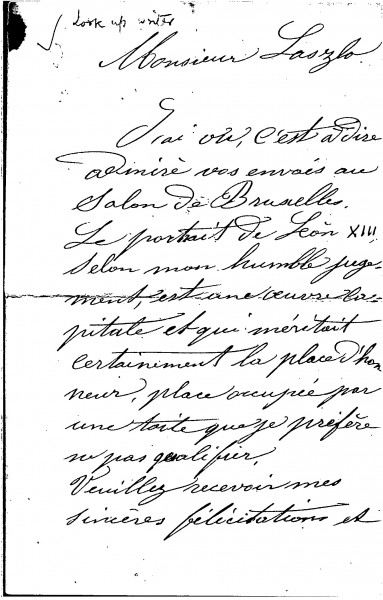 Look up writer
Monsieur Laszlo
J'ai vu, c'est a dire
admiré vos envois au
Salon de Bruxelles.
Le portrait de Léon XIII
selon mon humble juge-
ment, est une œuvre ca-
pitale et qui méritait
certainement la place d'hon
neur, place occupée par
une toile que je préfère
ne pas qualifier.
Veuillez recevoir mes
sincères félicitations et